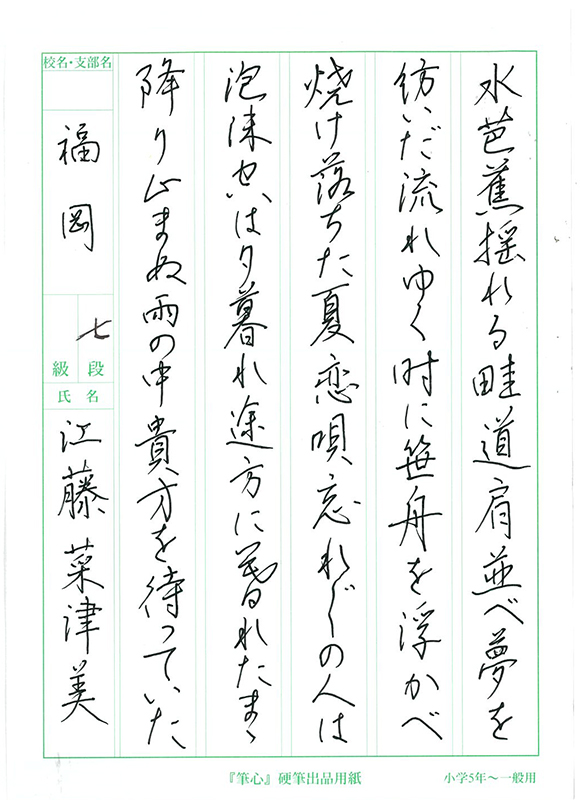 水芭蕉揺れる畦道肩並べ夢を
紡いだ流れゆく時に笹舟を浮かべ
焼け落ちた夏恋唄忘れじの人は
泡沫空は夕暮れ途方に暮れたまゝ
降り止まぬ雨の中貴方を待っていた
校名・支部名
福岡
七
段
級
氏名
江藤菜津美
『筆心』硬筆出品用紙
小学5年～一般用